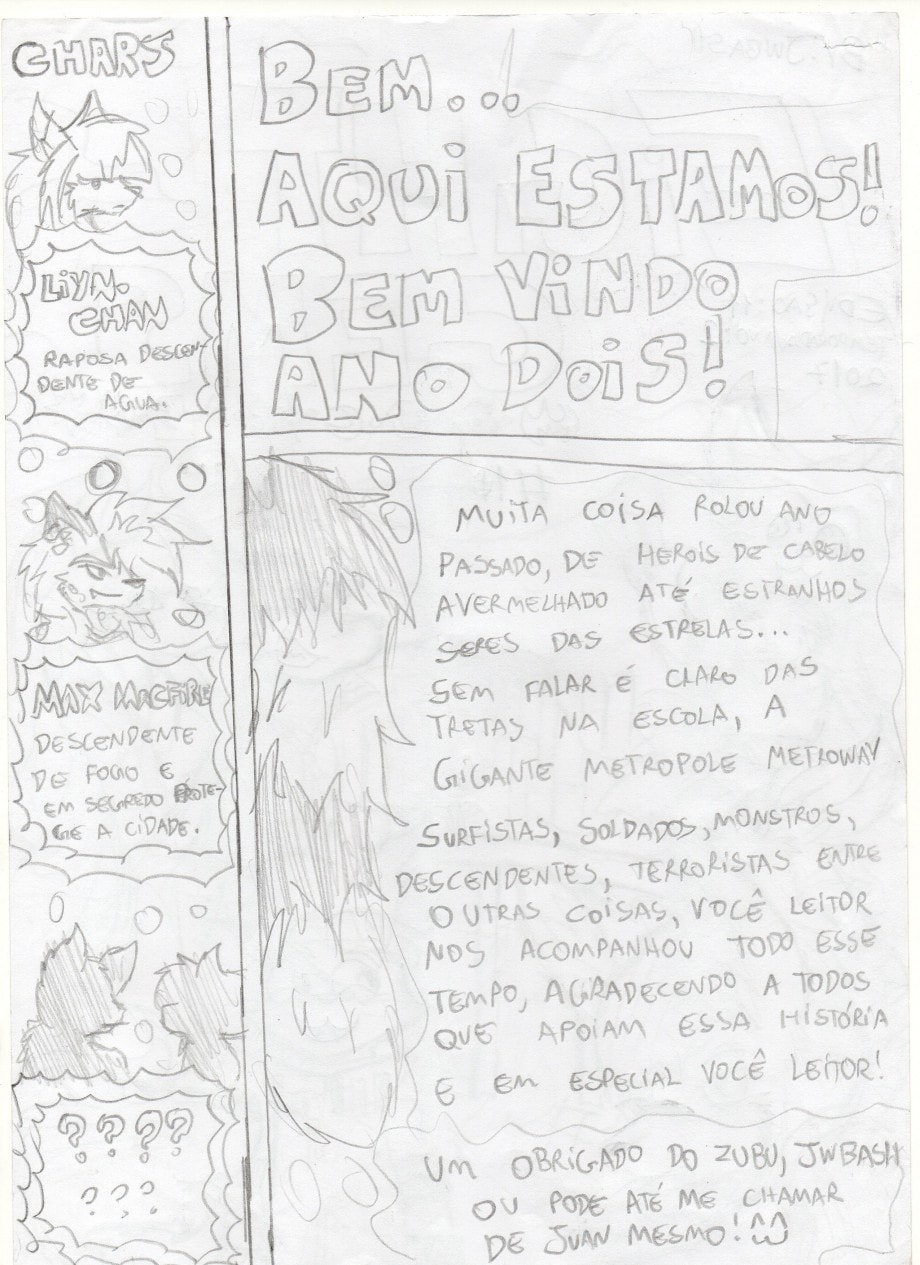 CHARS
LIYN-
CHAN
RAPOSA DESCEN-
DENTE DE
AGUA.
MAX MACFIRE
DESCENDENTE
DE FOGO E
EM SEGREDO PROTE-
GE A CIDADE.
? ? ? ?
? ? ?
BEM...
AQUI ESTAMOS!
BEM VINDO
ANO DOIS!
MUITA COISA ROLOU ANO
PASSADO, DE HEROIS DE CABELO
AVERMELHADO ATÉ ESTRANHOS
SERES DAS ESTRELAS...
SEM FALAR É CLARO DAS
TRETAS NA ESCOLA, A
GIGANTE METROPOLE METROWAY
SURFISTAS, SOLDADOS, MONSTROS,
DESCENDENTES, TERRORISTAS ENTRE
OUTRAS COISAS, VOCÊ LEITOR
NOS ACOMPANHOU TODO ESSE
TEMPO, AGRADECENDO A TODOS
QUE APOIAM ESSA HISTÓRIA
E EM ESPECIAL VOCÊ LEITOR!
UM OBRIGADO DO ZUBU, JWBASH
OU PODE ATÉ ME CHAMAR
DE JUAN MESMO! ^^